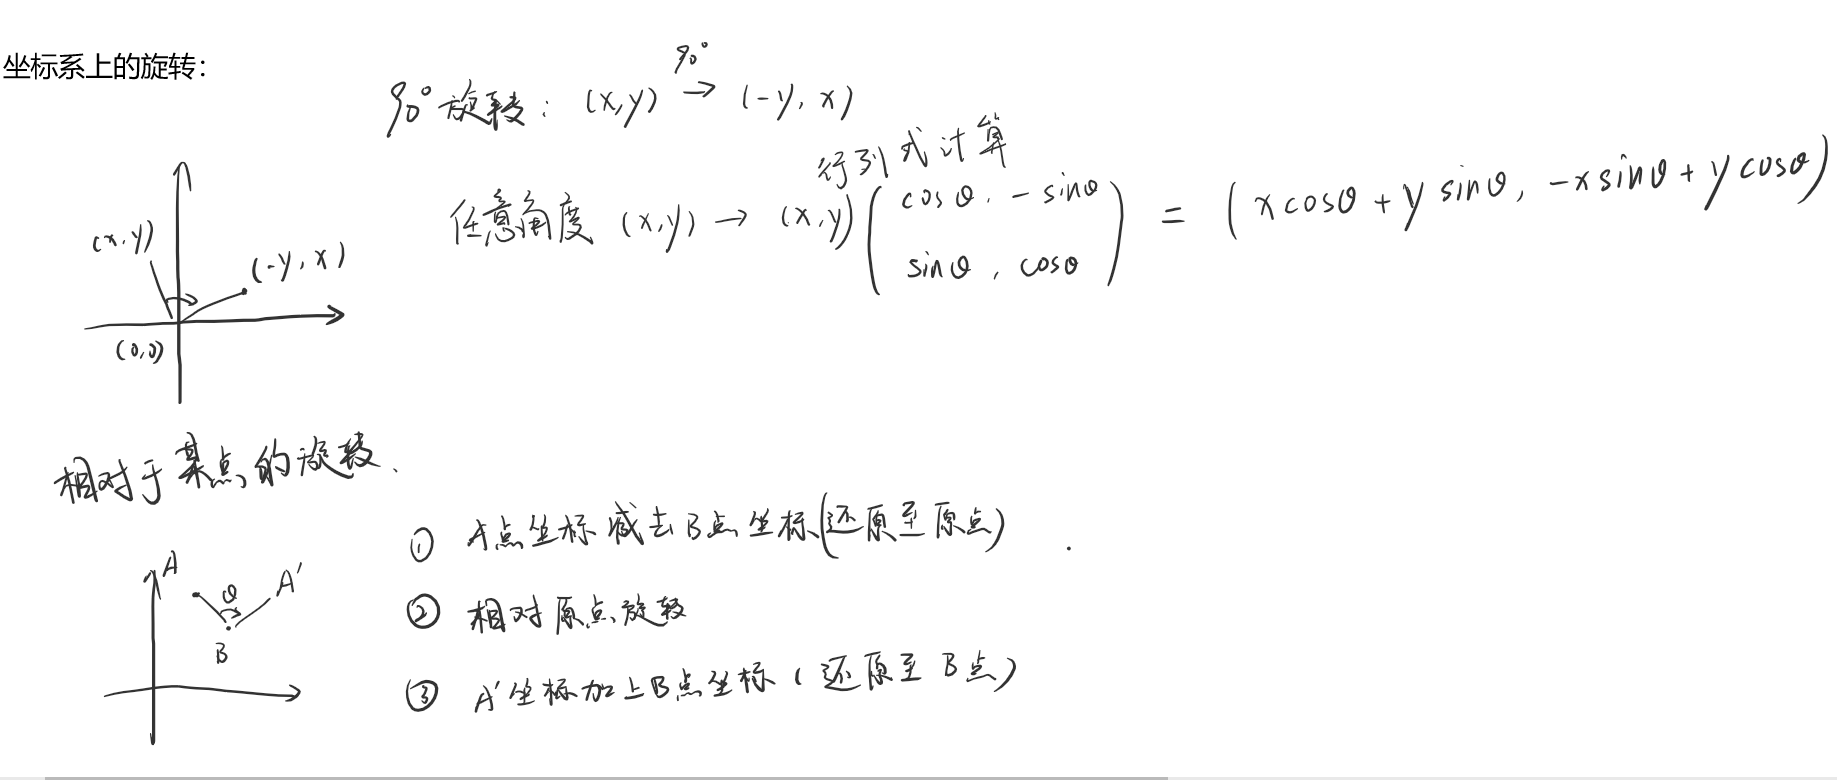 坐标系上的旋转：
90°
90°旋转：(x,y) → (-y, x)
行列式计算
任意角度 (x,y) → (x,y) (cosθ, -sinθ
sinθ, cosθ) = (xcosθ + y sinθ, -xsinθ + y cosθ)
(x,y)
(-y, x)
(0,0)
相对于某点的旋转、
① A点坐标减去B点坐标(还原至原点)
A
θ
A'
B
② 相对原点旋转
③ A'坐标加上B点坐标(还原至B点)